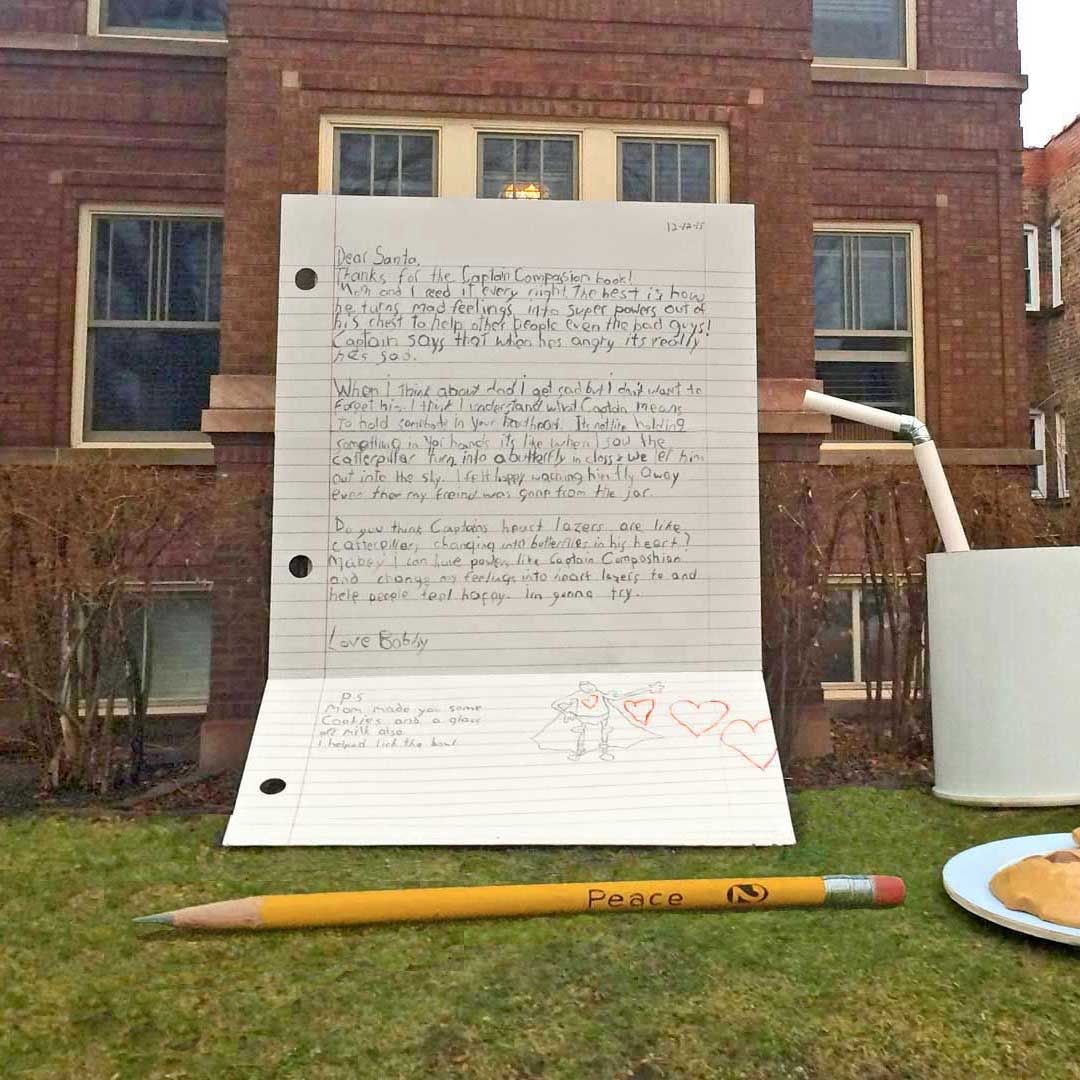 12-12-15
Dear Santa,
Thanks for the Captain Compassion book!
Mom and I reed it every night. The best is how
he turns mad feelings into super powers out of
his chest to help other people even the bad guys!
Captain says that when hes angry its really
hes sad.
When I think about dad I get sad but I dont want to
forget him. I think I understand what Captain means
to hold somebody in your heart. Its not like holding
something in your hands its like when I saw the
caterpillar turn into a butterfly in class & we let him
out into the sky. I felt happy waching him fly away
even tho my freind was gone from the jar.
Do you think Captains heart lazers are like
caterpillers changing into butterflies in his heart?
Mabey I can have powers like Captain Compashion
and change my feelings into heart lazers to and
help people feel happy. Im gonna try.
Love Bobby
P.S
Mom made you some
Cookies and a glass
of milk also
I helped lick the bowl
Peace 2